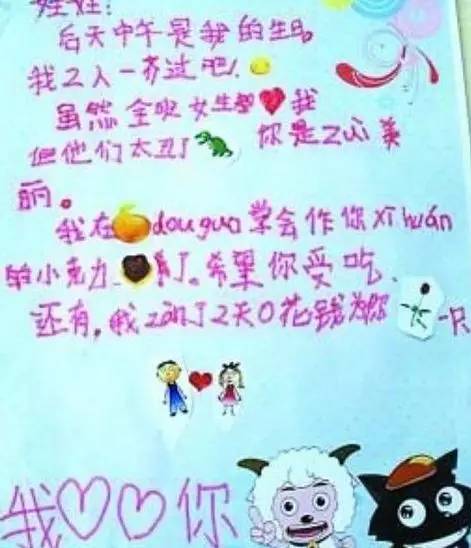 娃娃：
后天中午是我的生日
我2人一齐过吧！
虽然全班女生都我
但他们太丑了 你是zuì美
丽。
我在douguo学会作你xǐhuán
的小克力 了。希望你爱吃、
还有，我2天0花践为你一只
我♡♡你